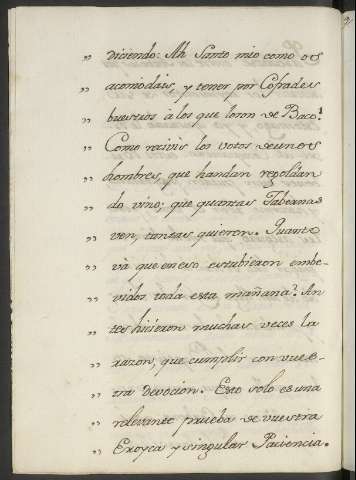 „ diciendo: Ah Santo mio como os
„ acomodáis, y tener por Cofrades
„ buestros à los que lo son de Baco!
„ Como recivìs los votos de unos
„ hombres, que handan regoldan
„ do vino; que quantas Tabernas
„ ven, tantas quieren. Quanto
„ và que en eso estubieron embe-
„ vidos toda esta mañana? An
„ tes hicieron muchas veces la
„ razon, que cumplir con vues-
„ tra devocion. Esto solo es una
„ relevante prueba de vuestra
„ Eroyca y singular Paciencia.